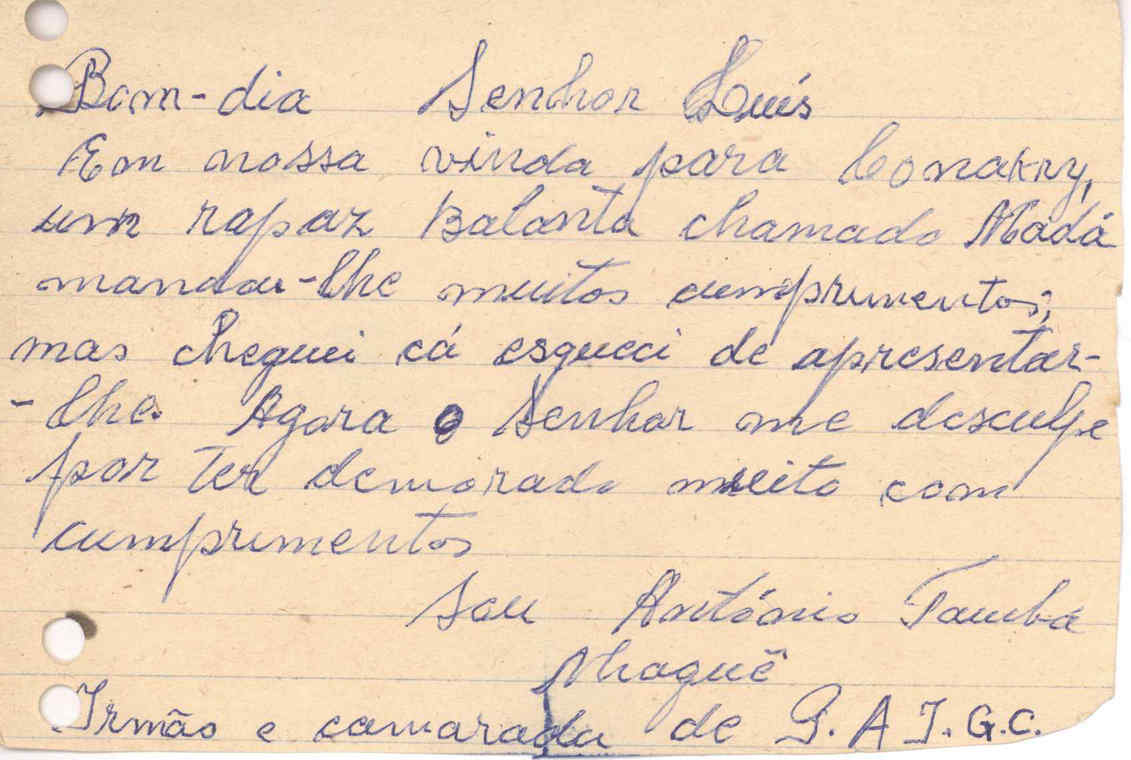 Bom-dia Senhor Luís
Em nossa vinda para Conakry,
um rapaz Balanta chamado Madá
mandou-lhe muitos cumprimentos;
mas cheguei cá esqueci de apresentar-
-lhe. Agora o Senhor me desculpe
por ter demorado muito com
cumprimentos
Sou António Tamba
Nhaguê
Irmão e camarada de P. A I. G.C.